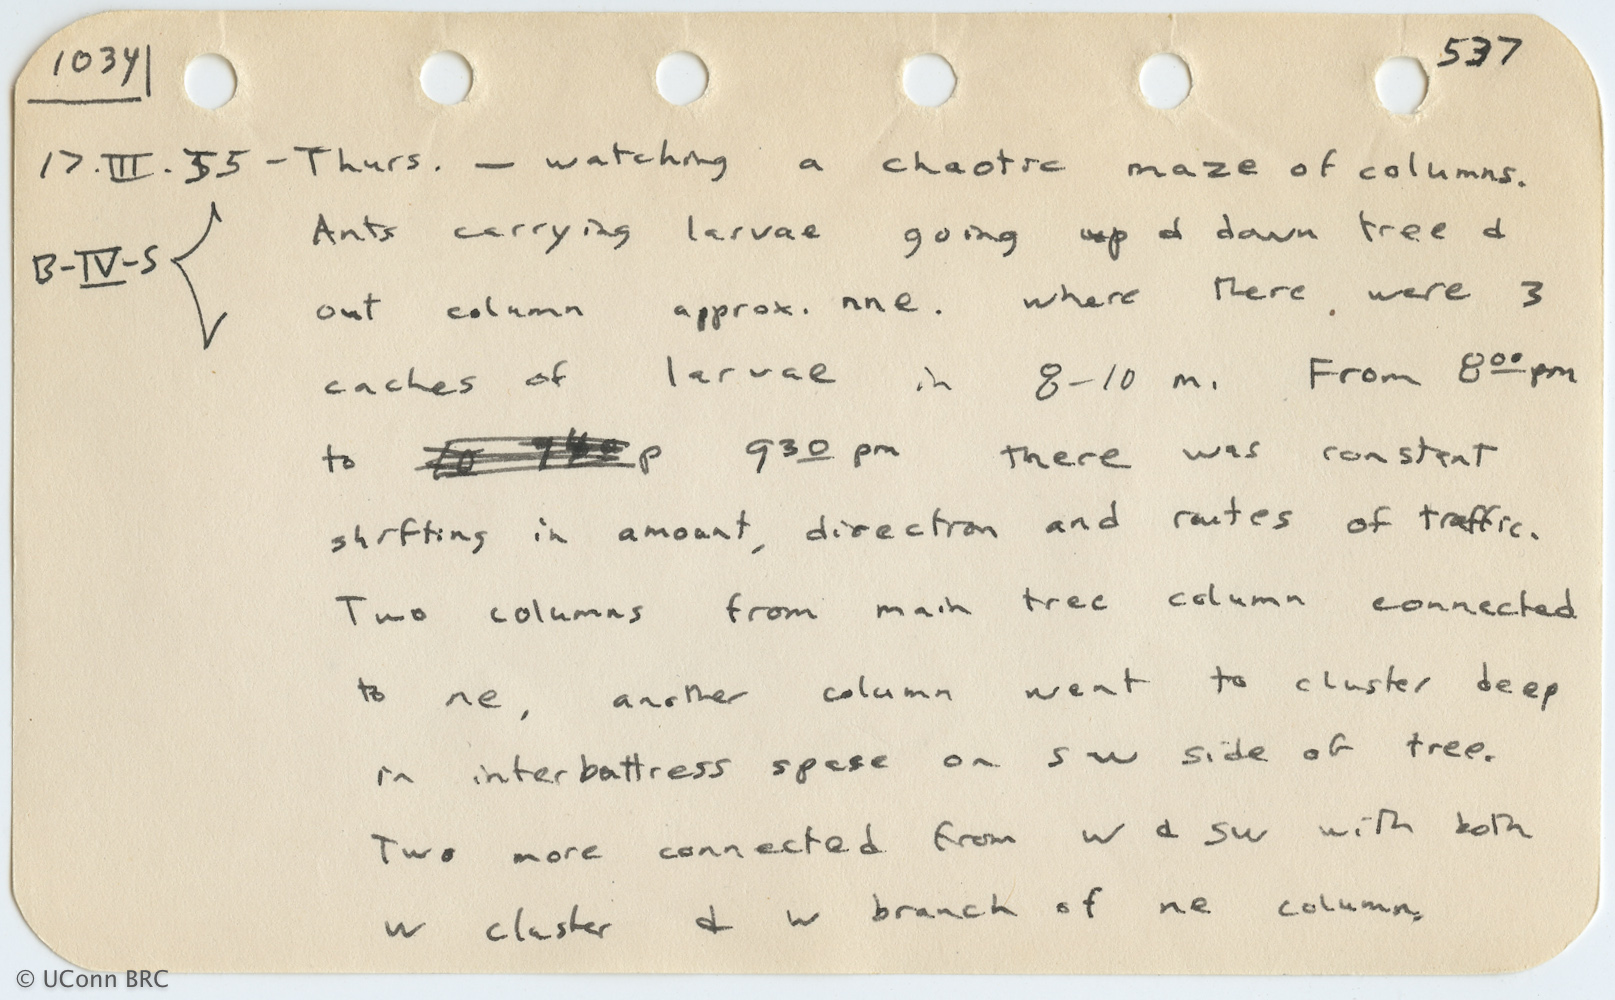 1034 537
17.III.55 - Thurs. — watching a chaotic maze of columns.
B-IV-S
Ants carrying larvae going up & down tree &
out column approx. nne. where there were 3
caches of larvae in 8-10 m. From 8⁰⁰ pm
to p 9³⁰ pm there was constant
shifting in amount, direction and routes of traffic.
Two columns from main tree column connected
to ne, another column went to cluster deep
in interbuttress space on s w side of tree.
Two more connected from w & sw with both
w cluster & w branch of ne column.
© UConn BRC